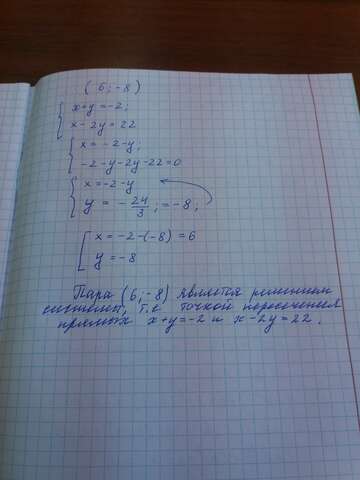 (6; -8)
x+y=-2;
x-2y=22
x=-2-y;
-2-y-2y-22=0
x=-2-y
y=-24/3; =-8;
x=-2-(-8)=6
y=-8
Пара (6; -8) является решением
системы, т.е точкой пересечения
прямых x+y=-2 и x-2y=22.